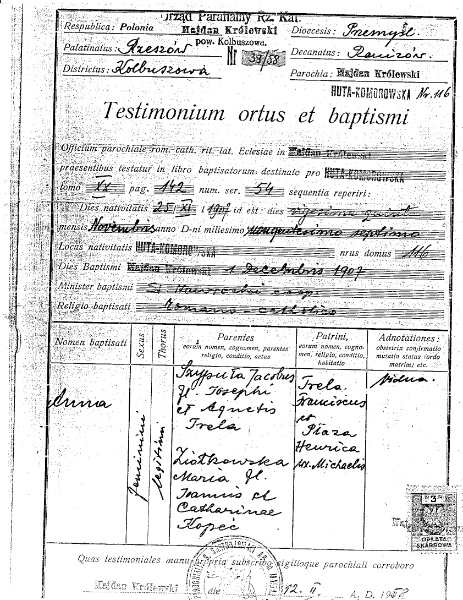 Urząd Parafialny Rz. Kat.
Majdan Królewski
pow. Kolbuszowa.
Nr 39/58
Respublica: Polonia
Palatinatus: Rzeszów
Districtus: Kolbuszowa
Dioecesis: Przemyśl
Decanatus: Raniżów
Parochia: Majdan Królewski
HUTA-KOMOROWSKA Nr. 116
Testimonium ortus et baptismi
Officium parochiale rom.-cath. rit. lat. Ecclesiae in Majdan Królewski
praesentibus testatur in libro baptisatorum destinato pro HUTA-KOMOROWSKA
tomo XX pag. 142 num. ser. 54 sequentia reperiri:
Dies nativitatis 25 XI 1907 id est: dies vigesima quinta
mensis Novembris anno D-ni millesimo nongentesimo septimo
Locus nativitatis HUTA-KOMOROWSKA nrus domus 116
Dies Baptismi Majdan Królewski 1 Decembris 1907
Minister baptismi St Nawrocki coop.
Religio baptismi romano-catholico
Nomen baptisati
Sexus
Thorus
Parentes
eorum nomen, cognomen, parentes
religio, conditio, aetas
Patrini,
eorum nomen, cognomen, religio, conditio,
habitatio
Adnotationes:
obstetrix confirmatio
mutatio status (ordo
matrim.) etc.
Anna
feminini
legitimi
Jacobus
fil. Josephi
et Agnetis
Trela
Ziółkowska
Maria fil.
Joannis et
Catharinae
Kopeć
Trela
Franciscus
et
Płaza
Henrica
ux. Michaelis
vidua.
3
OPŁATA
SKARBOWA
Quas testimoniales manu propria subscribo sigilloque parochiali corroboro
Majdan Królewski die 12. II. A. D. 1958